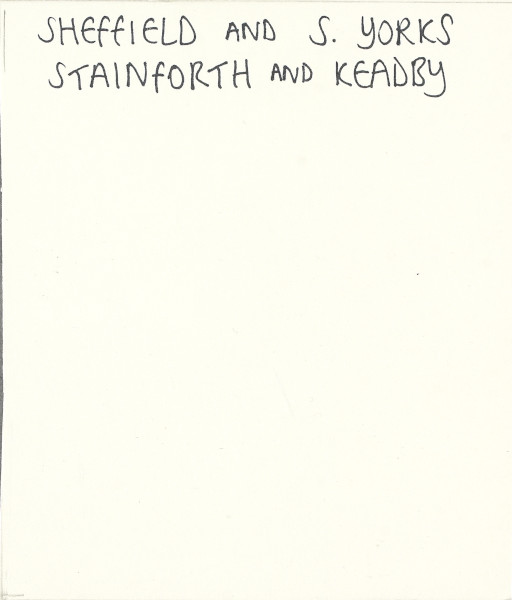 SHEFFIELD AND S. YORKS
STAINFORTH AND KEADBY